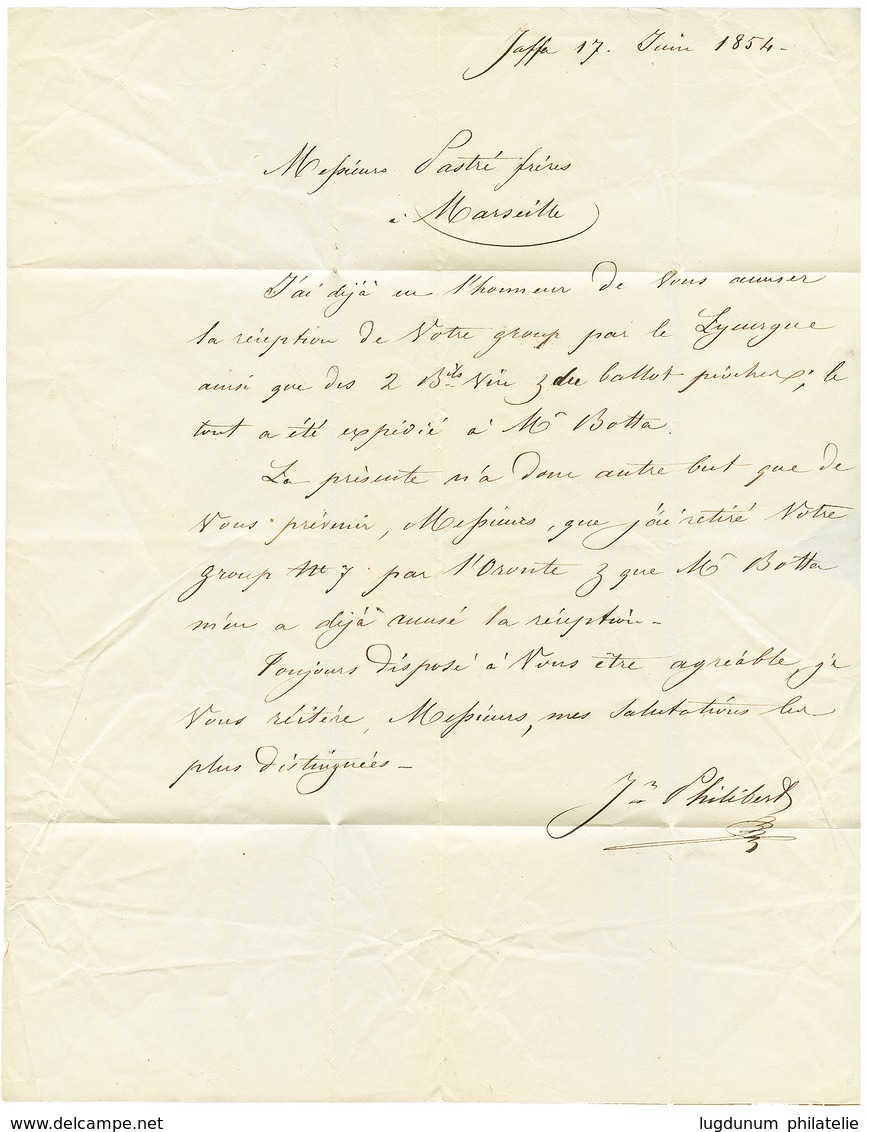 Jaffa 17. Juin 1854 -
Messieurs Pastré frères
à Marseille
J'ai déjà eu l'honneur de Vous accuser
la réception de Votre group par le Lycurgue
ainsi que des 2 B.ils Vin & du ballot ; le
tout a été expédié à Mr Botta.
La présente n'a donc autre but que de
Vous prévenir, Messieurs, que j'ai retiré Votre
group No 7. par l'Oronte & que Mr Botta
m'en a déjà accusé la réception -
Toujours disposé à Vous être agréable, je
Vous réitère, Messieurs, mes salutations les
plus distinguées -
Jn Philibert
www.delcampe.net lugdunum philatelie